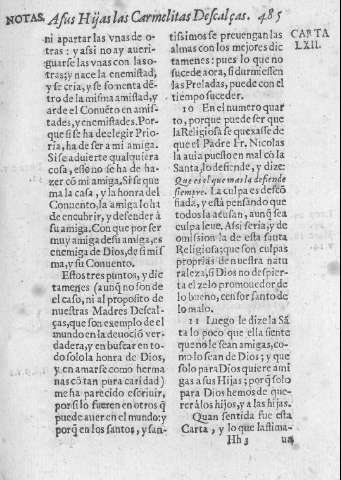 NOTAS. A sus Hijas las Carmelitas Descalças. 485
ni apartar las vnas de o-
tras: y assi no ay aueri-
guarse las vnas con las o-
tras; y nace la enemistad,
y se cria, y se fomenta dẽ-
tro de la misma amistad, y
arde el Conuẽto en amis-
tades, y enemistades. Por-
que si se ha de elegir Prio-
ria, ha de ser a mi amiga.
Si se aduierte qualquiera
cosa, esso no se ha de ha-
zer cõ mi amiga, Si se que
ma la casa, y la honra del
Conuento, la amiga lo ha
de encubrir, y defender à
su amiga. Con que por ser
muy amiga de su amiga, es
enemiga de Dios, de si mis
ma, y su Conuento.
Estos tres puntos, y dic
tamenes (aunq̃ no son de
el caso, ni al proposito de
nuestras Madres Descal-
ças, que son exemplo de el
mundo en la deuociõ ver-
dadera, y en buscar en to-
do solo la honra de Dios,
y en amarse como herma
nas cõ tan pura caridad)
me ha parecido escriuir,
por si lo fueren en otros q̃
puede auer en el mundo: y
porq̃ en los santos, y san-
tissimos se preuengan las
almas con los mejores dic
tamenes: pues lo que no
sucede aora, si durmiessen
las Preladas, puede con el
tiempo suceder.
10 En el numero quar
to, porque puede ser que
la Religiosa se quexasse de
que el Padre Fr. Nicolas
la auia puesto en mal cõ la
Santa, lo defiende, y dize:
Que es el que mas la defiende
siempre. La culpa es descõ
fiada, y està pensando que
todos la acusan, aunq̃ sea
culpa leue. Assi seria, y de
omission la de esta santa
Religiosa; que son culpas
proprias de nuestra natu
raleza, si Dios no despier-
ta el zelo promouedor de
lo bueno, censor santo de
lo malo.
11 Luego le dize la Sã
ta lo poco que ella siente
que no le sean amigas, co-
mo lo sean de Dios; y que
solo para Dios quiere ami
gas a sus Hijas; porq̃ solo
para Dios hemos de que-
rer à los hijos, y a las hijas.
Quan sentida fue esta
Carta, y lo que lastima-
Hh 3 ua
CARTA
LXII.